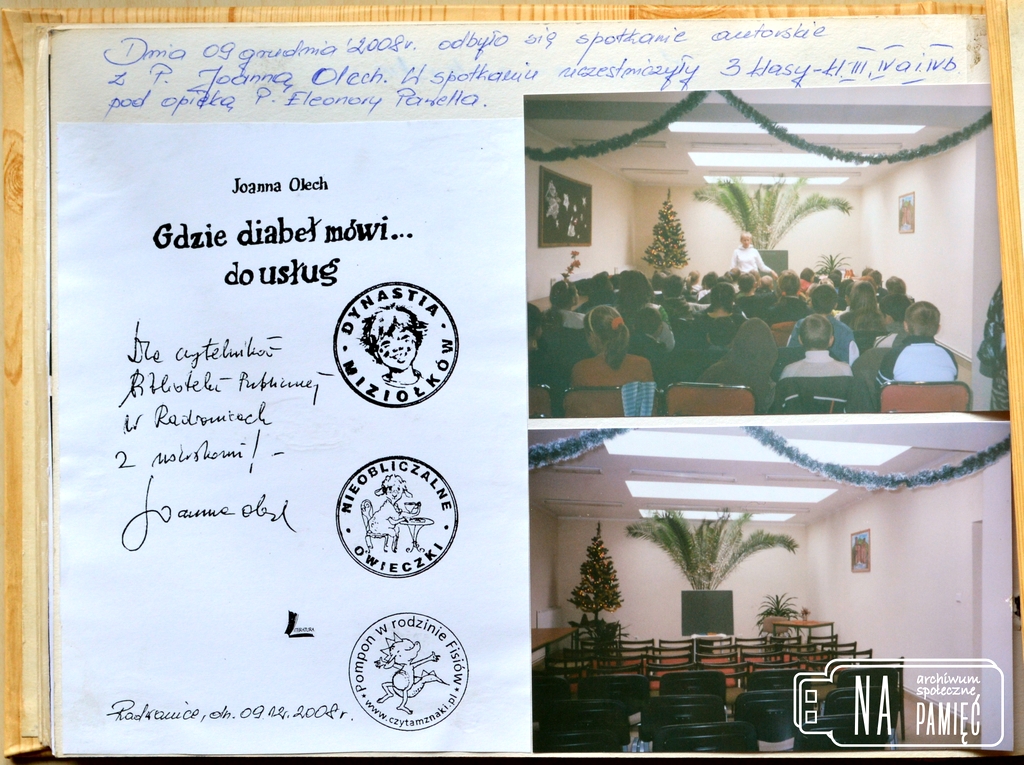 Dnia 09 grudnia 2008r. odbyło się spotkanie autorskie
z P. Joanną Olech. W spotkaniu uczestniczyły 3 klasy - kl III, IVa i IVb
pod opieką P. Eleonory Pawełła.
Joanna Olech
Gdzie diabeł mówi...
do usług
DYNASTIA MIZIOŁKÓW
Dla czytelników
Biblioteki Publicznej
w Radwanicach
z uściskami! -
Joanna Olech
NIEOBLICZALNE OWIECZKI
LITERATURA
Pompon w rodzinie Fisiów
www.czytamznaki.pl
Radwanice, dn. 09.12.2008r.
archiwum
społeczne
NA PAMIĘĆ